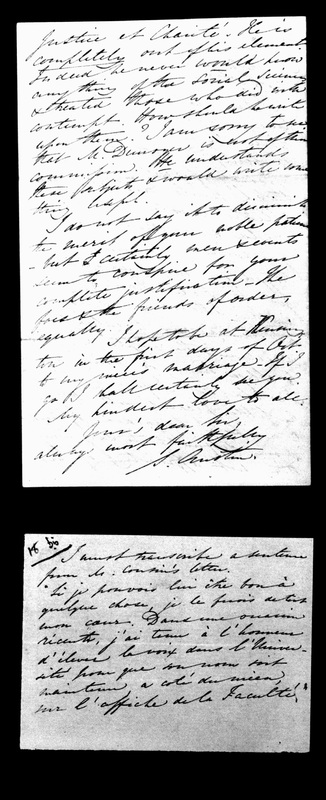 Justice et Charité. He is
completely out of his element
Indeed he never would know
anything of the Social Sciences
& treated those who did with
contempt. How should he write
upon them? I am sorry to see
that M. Dunoyer is not of the
commission. He understands
these subjects & would write some
thing useful.
I do not say it to diminish
the merit of your noble patience
- but certainly men & events
seem to conspire for your
complete justification - the
foes & the friends of order,
equally.
I hope to be at
ton in the first days of Oct
to my niece's marriage. If I
go I shall certainly see you.
My kindest love to all.
Your's dear Sir,
always most faithfully
S. Austin.
bis
I must transcribe a sentence
from M. Cousin's letter.
"Si je pouvois lui être bon à
quelque chose, je le ferois de tout
mon cœur. Dans une occasion
récente, j'ai tenu à l'honneur
d'élever la voix dans l'Univer-
sité pour que son nom soit
maintenu, a coté du mien,
sur l'affiche de la Faculté."